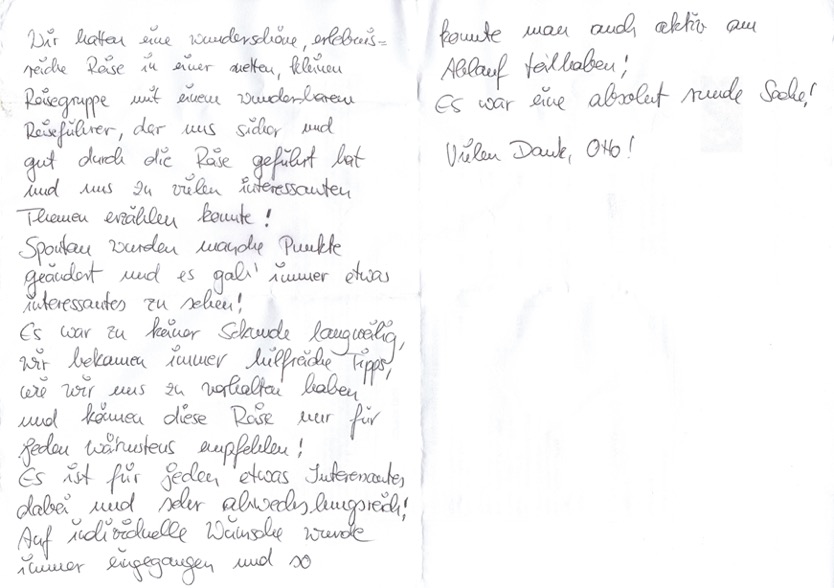 Wir hatten eine wunderschöne, erlebnis=
reiche Reise in einer netten, kleinen
Reisegruppe mit einem wunderbaren
Reiseführer, der uns sicher und
gut durch die Reise geführt hat
und uns zu vielen interessanten
Themen erzählen konnte!
Spontan wurden manche Punkte
geändert und es gab' immer etwas
interessantes zu sehen!
Es war zu keiner Sekunde langweilig,
wir bekamen immer hilfreiche Tipps,
wie wir uns zu verhalten haben
und können diese Reise nur für
jeden wärmstens empfehlen!
Es ist für jeden etwas Interessantes
dabei und sehr abwechslungsreich!
Auf individuelle Wünsche wurde
immer eingegangen und so
konnte man auch aktiv am
Ablauf teilhaben!
Es war eine absolut runde Sache!
Vielen Dank, Otto!